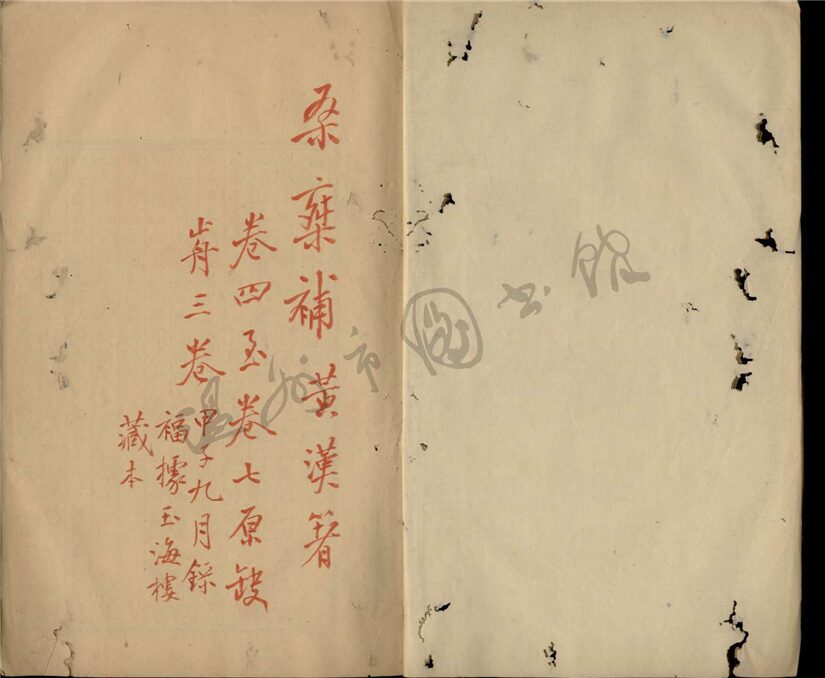 補黃漢箸
卷四至卷七原缺
歬三卷
甲子九月錄
福據玉海樓
藏本
温州市圖書館